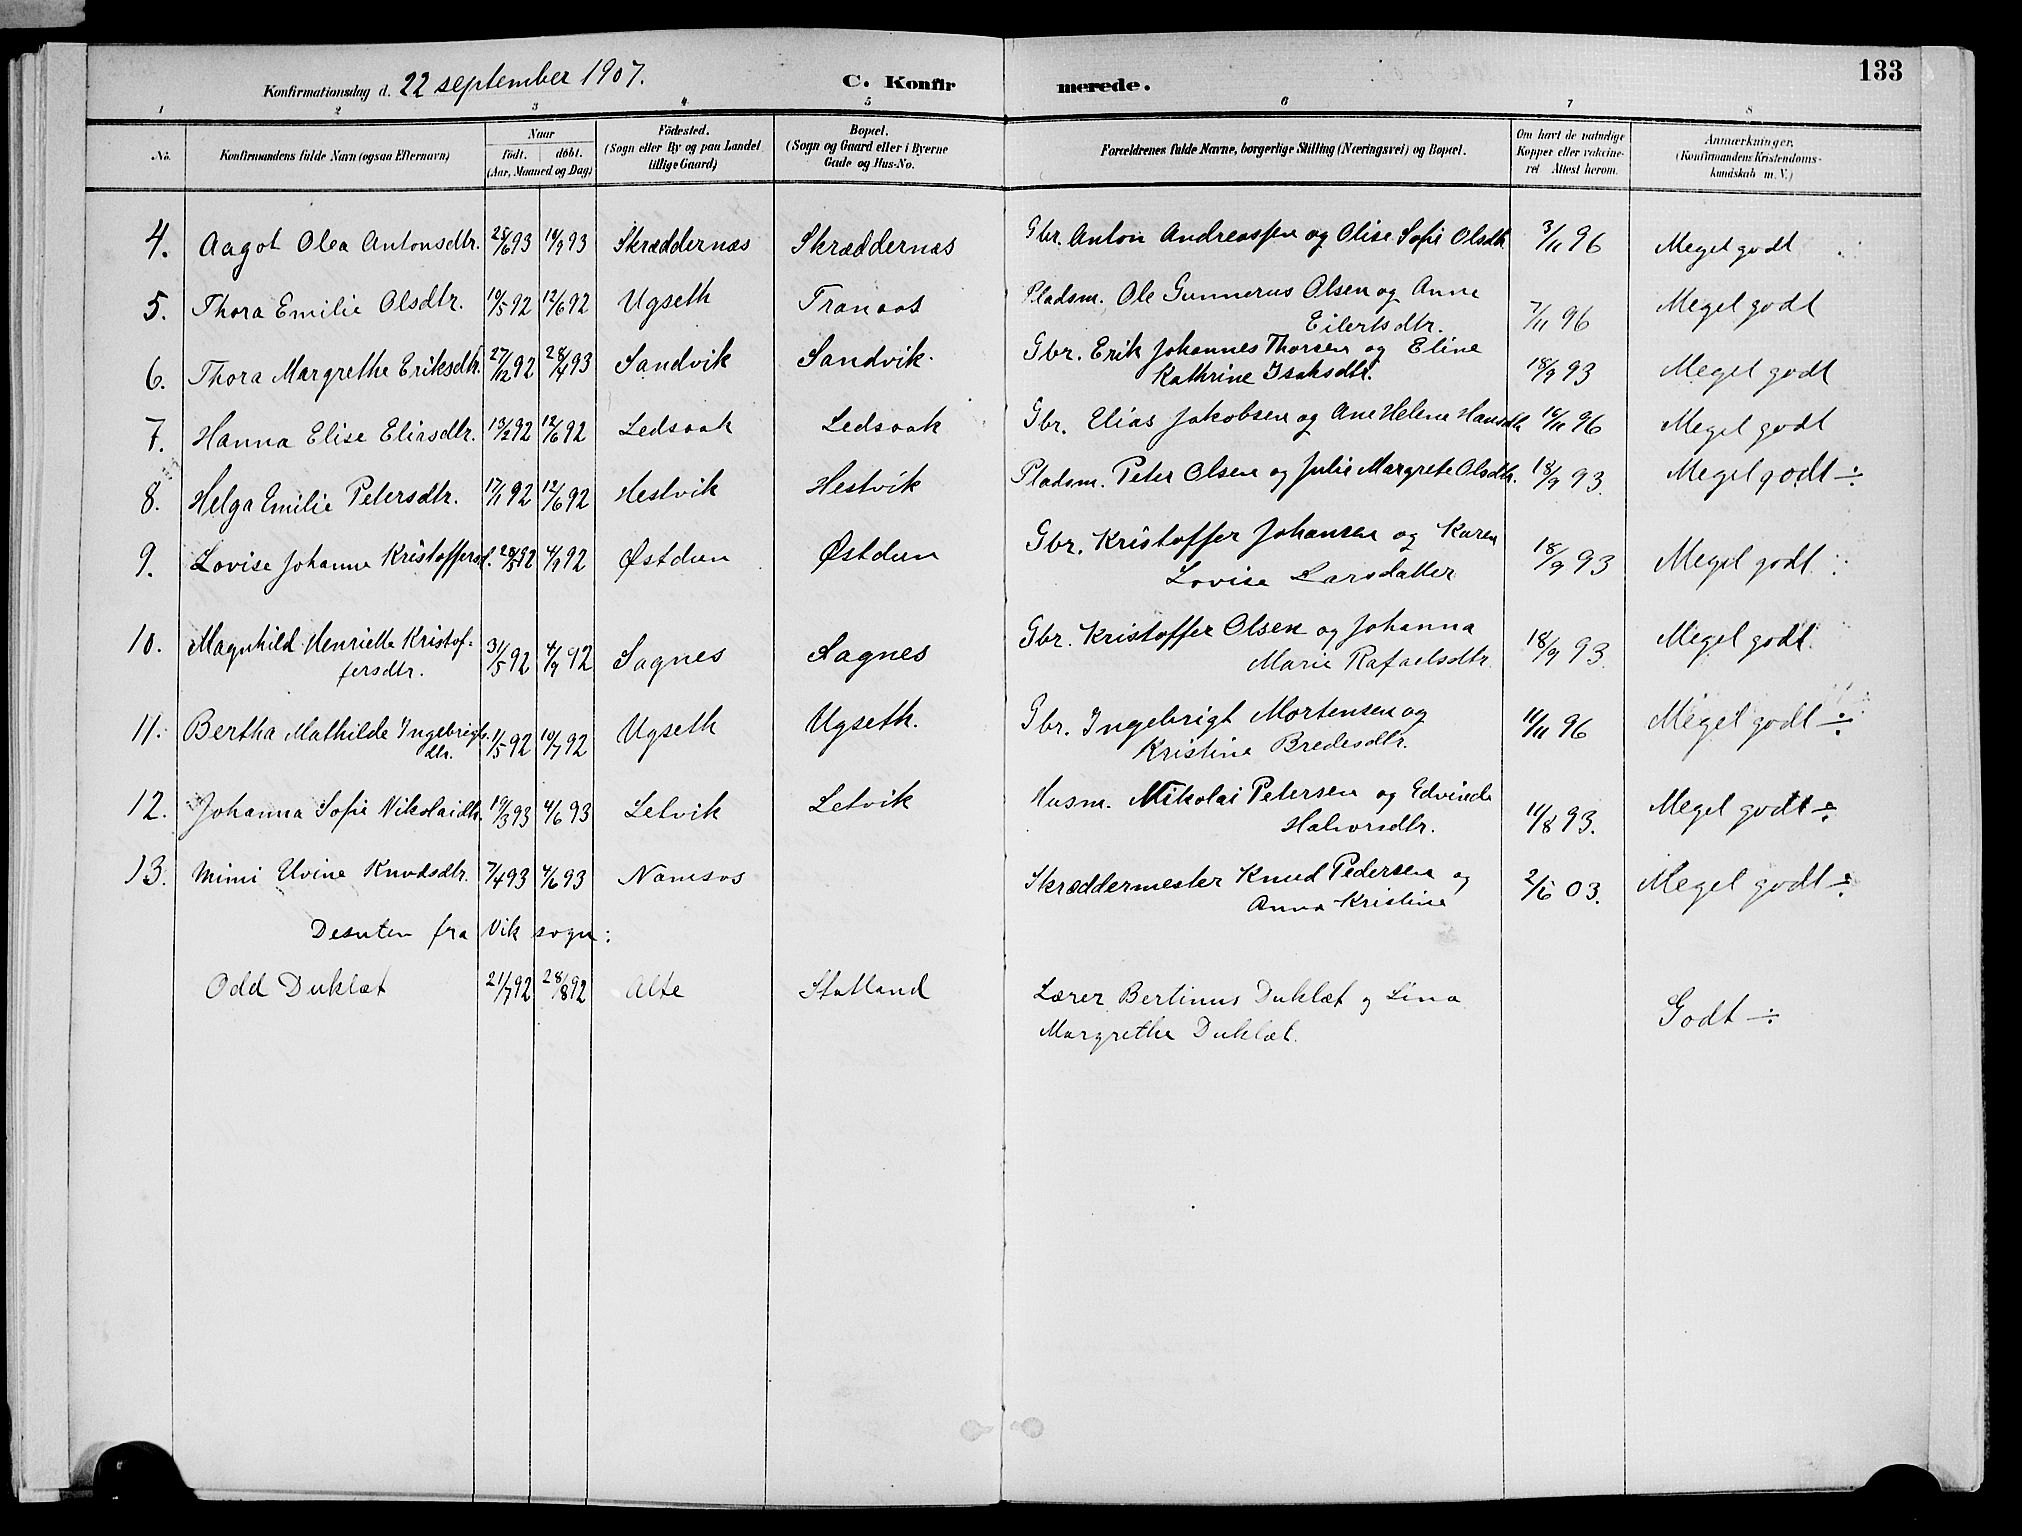 133
Konfirmationsdag d. 22 september 1907. C. Konfirmerede.
1 2 3 4 5 6 7 8
No. Konfirmandens fulde Navn (ogsaa Efternavn) Naar født. døbt. (Aar, Maaned og Dag) Födested. (Sogn eller By og paa Landet tillige Gaard) Bopæl. (Sogn og Gaard eller i Byerne Gade og Hus-No. Forældrenes fulde Navne, borgerlige Stilling (Næringsvei) og Bopæl. Om havt de naturlige Kopper eller vaccineret Attest herom. Anmærkninger. (Konfirmandens Kristendomskundskab m. V.)
4. Aagot Olea Antonsdtr. 28/6 93 14/9 93 Skræddernæs Skræddernæs Gbr. Anton Andreassen og Olise Sofie Olsdtr 3/11 96 Meget godt
5. Thora Emilie Olsdtr. 19/5 92 12/6 92 Ugseth Tranaas Pladsm. Ole Gunnerus Olsen og Anne
Eilertsdtr. 7/11 96 Meget godt
6. Thora Margrethe Eriksdtr. 27/12 92 28/4 93 Sandvik Sandvik. Gbr. Erik Johannes Thorsen og Eline
Kathrine Isaksdtr. 18/9 93 Meget godt
7. Hanna Elise Eliasdtr. 13/2 92 12/6 92 Ledsaak Ledsaak Gbr. Elias Jakobsen og Ane Helene Hansdtr 14/11 96 Meget godt
8. Helga Emilie Petersdtr. 17/1 92 12/6 92 Hestvik Hestvik Pladsm. Peter Olsen og Julie Margrete Olsdtr. 18/9 93. Meget godt ÷
9. Lovise Johanne Kristoffersd. 28/5 92 4/9 92 Østduun Østduun Gbr. Kristoffer Johansen og Karen
Lovise Larsdatter 18/9 93 Meget godt.
10. Magnhild Henriette Kristof-
fersdtr. 31/5 92 4/9 92 Sagnes Sagnes Gbr. Kristoffer Olsen og Johanna
Marie Rafaelsdtr. 18/9 93. Meget godt.
11. Bertha Mathilde Ingebrigts-
dtr. 1/5 92 10/7 92 Ugseth Ugseth. Gbr. Ingebrigt Mortensen og
Kristine Bredesdtr. 11/11 96 Meget godt ÷
12. Johanna Sofie Nikolaidtr. 19/3 93 4/6 93 Letvik Letvik Husm. Nikolai Petersen og Edvinda
Halvorsdtr. 11/8 93. Meget godt ÷
13. Mimi Uvine Knudsdtr. 7/4 93 4/6 93 Namsos Skræddermester Knud Pedersen og
Anna Kristine 2/6 03. Meget godt ÷
Desuten fra Vik sogn:
Odd Duklæt 21/7 92 28/8 92 Alte Statland Lærer Bertinus Duklæt og Lina
Margrethe Duklæt. Godt ÷